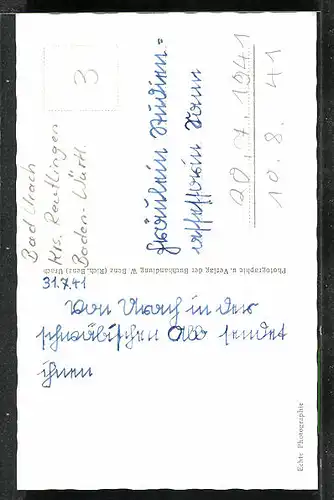 3
Bad Urach
Krs. Reutlingen
Baden-Württ.
Fräulein Studien=
assessorin
20.7.1941
10.8.41
Photographie u. Verlag der Buchhandlung W. Benz (Rich. Benz) Urach
31.7.41
Von Urach in der
schwäbischen Alb sendet
ihnen
Echte Photographie